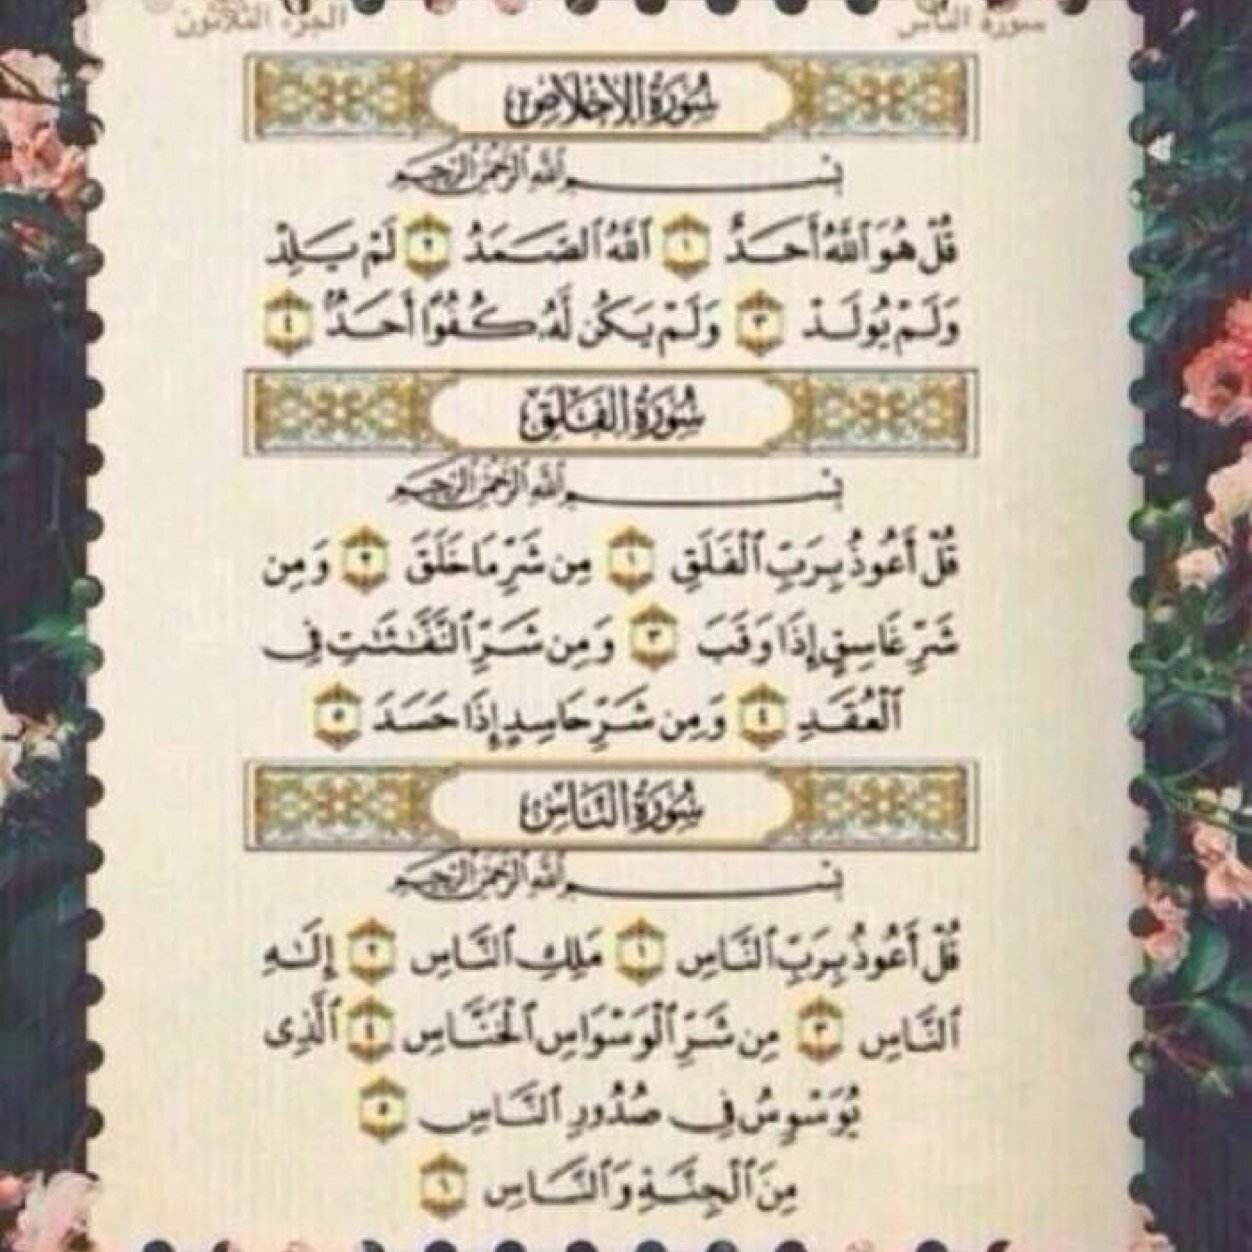 سورة الناس الجزء الثلاثون
سُورَةُ الإِخْلَاصِ
بِسْمِ ٱللَّهِ ٱلرَّحْمَٰنِ ٱلرَّحِيمِ
قُلْ هُوَ ٱللَّهُ أَحَدٌ ١ ٱللَّهُ ٱلصَّمَدُ ٢ لَمْ يَلِدْ
وَلَمْ يُولَدْ ٣ وَلَمْ يَكُن لَّهُۥ كُفُوًا أَحَدٌۢ ٤
سُورَةُ الفَلَقِ
بِسْمِ ٱللَّهِ ٱلرَّحْمَٰنِ ٱلرَّحِيمِ
قُلْ أَعُوذُ بِرَبِّ ٱلْفَلَقِ ١ مِن شَرِّ مَا خَلَقَ ٢ وَمِن
شَرِّ غَاسِقٍ إِذَا وَقَبَ ٣ وَمِن شَرِّ ٱلنَّفَّٰثَٰتِ فِى
ٱلْعُقَدِ ٤ وَمِن شَرِّ حَاسِدٍ إِذَا حَسَدَ ٥
سُورَةُ النَّاسِ
بِسْمِ ٱللَّهِ ٱلرَّحْمَٰنِ ٱلرَّحِيمِ
قُلْ أَعُوذُ بِرَبِّ ٱلنَّاسِ ١ مَلِكِ ٱلنَّاسِ ٢ إِلَٰهِ
ٱلنَّاسِ ٣ مِن شَرِّ ٱلْوَسْوَاسِ ٱلْخَنَّاسِ ٤ ٱلَّذِى
يُوَسْوِسُ فِى صُدُورِ ٱلنَّاسِ ٥
مِنَ ٱلْجِنَّةِ وَٱلنَّاسِ ٦